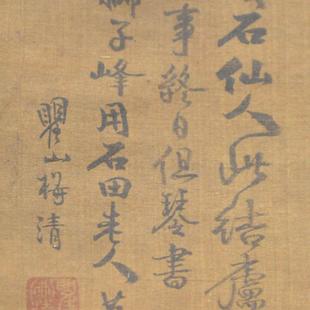 石仙人此結廬
事終日但琴書
獅子峰用石田老人
瞿山梅清